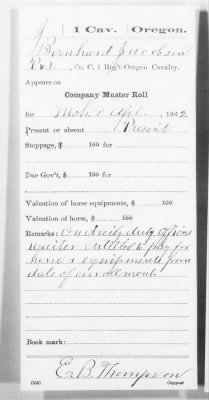 J | 1 Cav. | Oregon.
Bernhard Jacobson
Pvt, Co. C, 1 Reg't Oregon Cavalry.
Appears on
Company Muster Roll
for Mch & Apl, 1862.
Present or absent Present
Stoppage, $ 100 for
Due Gov't, $ 100 for
Valuation of horse equipments, $ 100
Valuation of horse, $ 100
Remarks: On daily duty Officers
waiter entitled to pay for
horse & equipments from
date of enrollment
Book mark:
E. B. Thompson
Copyist.